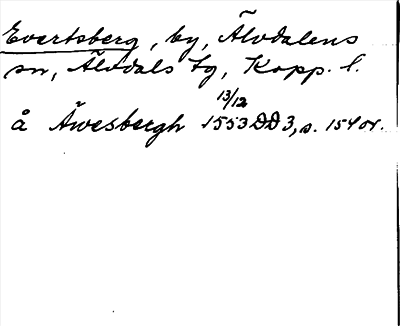 Evertsberg, by, Älvdalens
sn, Älvdals tg, Kopp. l.
å Äwesbergh 13/12 1553 DD 3, s. 154 or.